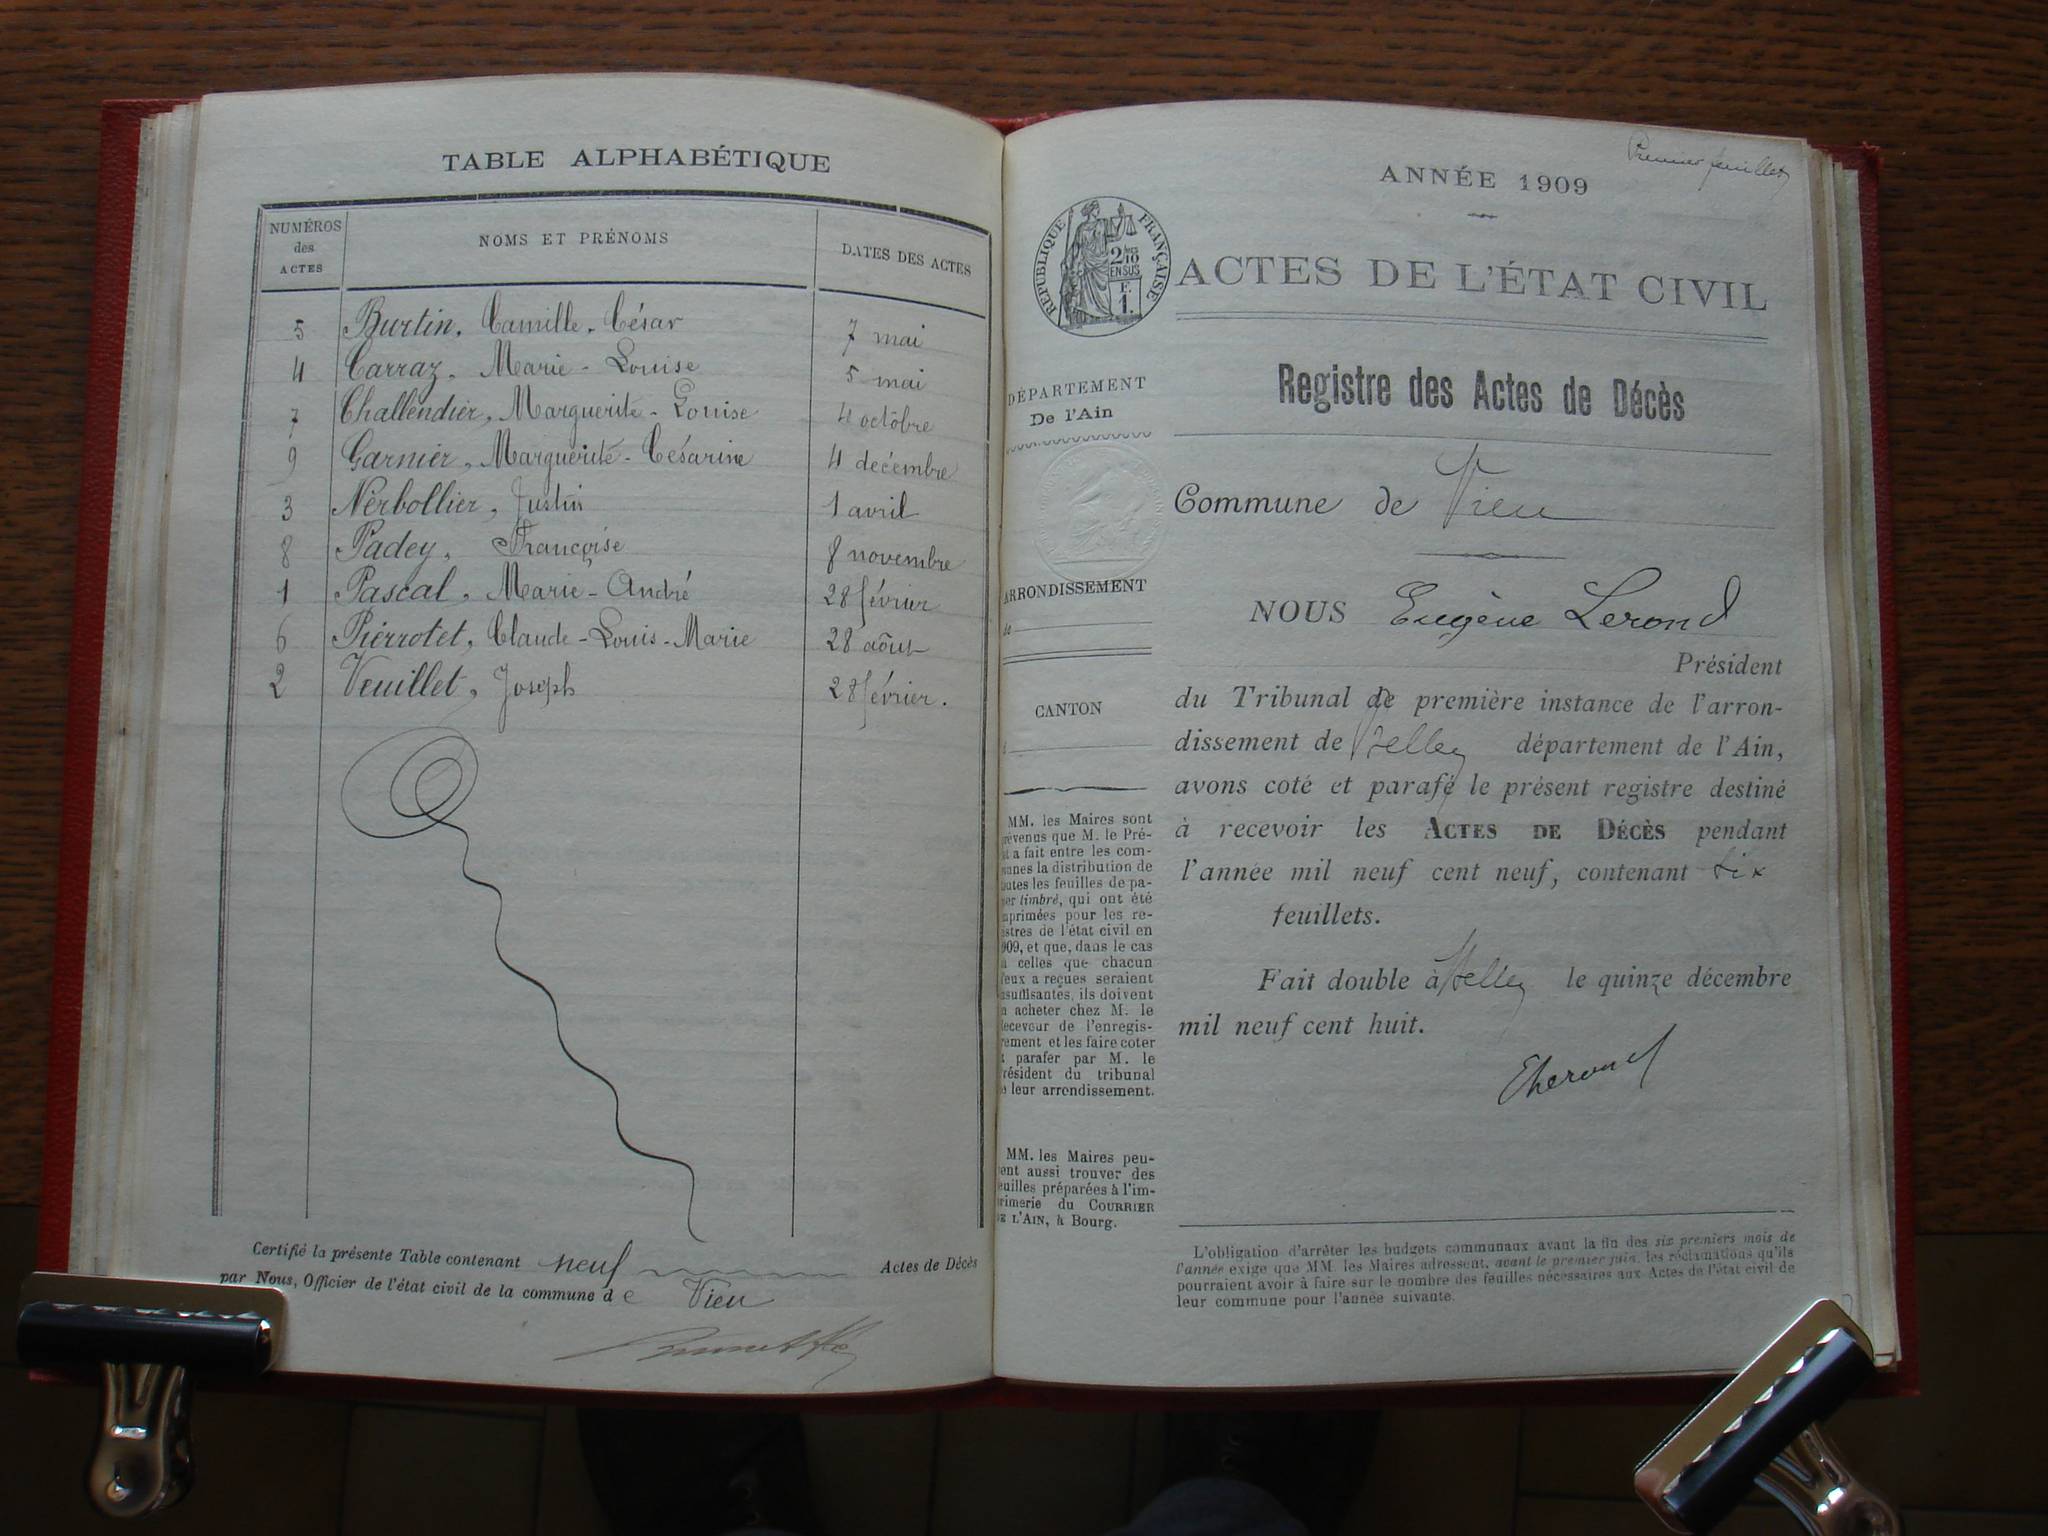 TABLE ALPHABÉTIQUE
NUMÉROS des ACTES
NOMS ET PRÉNOMS
DATES DES ACTES
5 Burtin, Camille, César 7 mai
4 Carraz, Marie-Louise 5 mai
7 Challendier, Marguerite-Louise 4 octobre
9 Garnier, Marguerite-Césarine 4 decémbre
3 Nérbollier, Justin 1 avril
8 Padey, Françoise 8 novembre
1 Pascal, Marie-André 28 février
6 Piérrotet, Claude-Louis-Marie 28 août
2 Veuillet, Joseph 28 février.
Certifié la présente Table contenant neuf Actes de Décès
par Nous, Officier de l'état civil de la commune de Vieu
Premier feuillet
ANNÉE 1909
RÉPUBLIQUE FRANÇAISE
2/10
EN SUS
F.
1.
ACTES DE L'ÉTAT CIVIL
Registre des Actes de Décès
DÉPARTEMENT
De l'Ain
Commune de Vieu
ARRONDISSEMENT
de
CANTON
NOUS Eugène Lerond
Président
du Tribunal de première instance de l'arron-
dissement de Belley département de l'Ain,
avons coté et parafé le présent registre destiné
à recevoir les ACTES DE DÉCÈS pendant
l'année mil neuf cent neuf, contenant six
feuillets.
Fait double à Belley le quinze décembre
mil neuf cent huit.
MM. les Maires sont
évenus que M. le Pré-
t a fait entre les com-
unes la distribution de
utes les feuilles de pa-
er timbré, qui ont été
mprimées pour les re-
stres de l'état civil en
909, et que, dans le cas
celles que chacun
eux a reçues seraient
nsuffisantes, ils doivent
acheter chez M. le
ecevour de l'enregis-
rement et les faire coter
parafer par M. le
résident du tribunal
leur arrondissement.
MM. les Maires peu-
ent aussi trouver des
euilles préparées à l'im-
rimerie du COURRIER
DE L'AIN, à Bourg.
L'obligation d'arrêter les budgets communaux avant la fin des six premiers mois de
l'année exige que MM. les Maires adressent, avant le premier juin, les réclamations qu'ils
pourraient avoir à faire sur le nombre des feuilles nécessaires aux Actes de l'état civil de
leur commune pour l'année suivante.